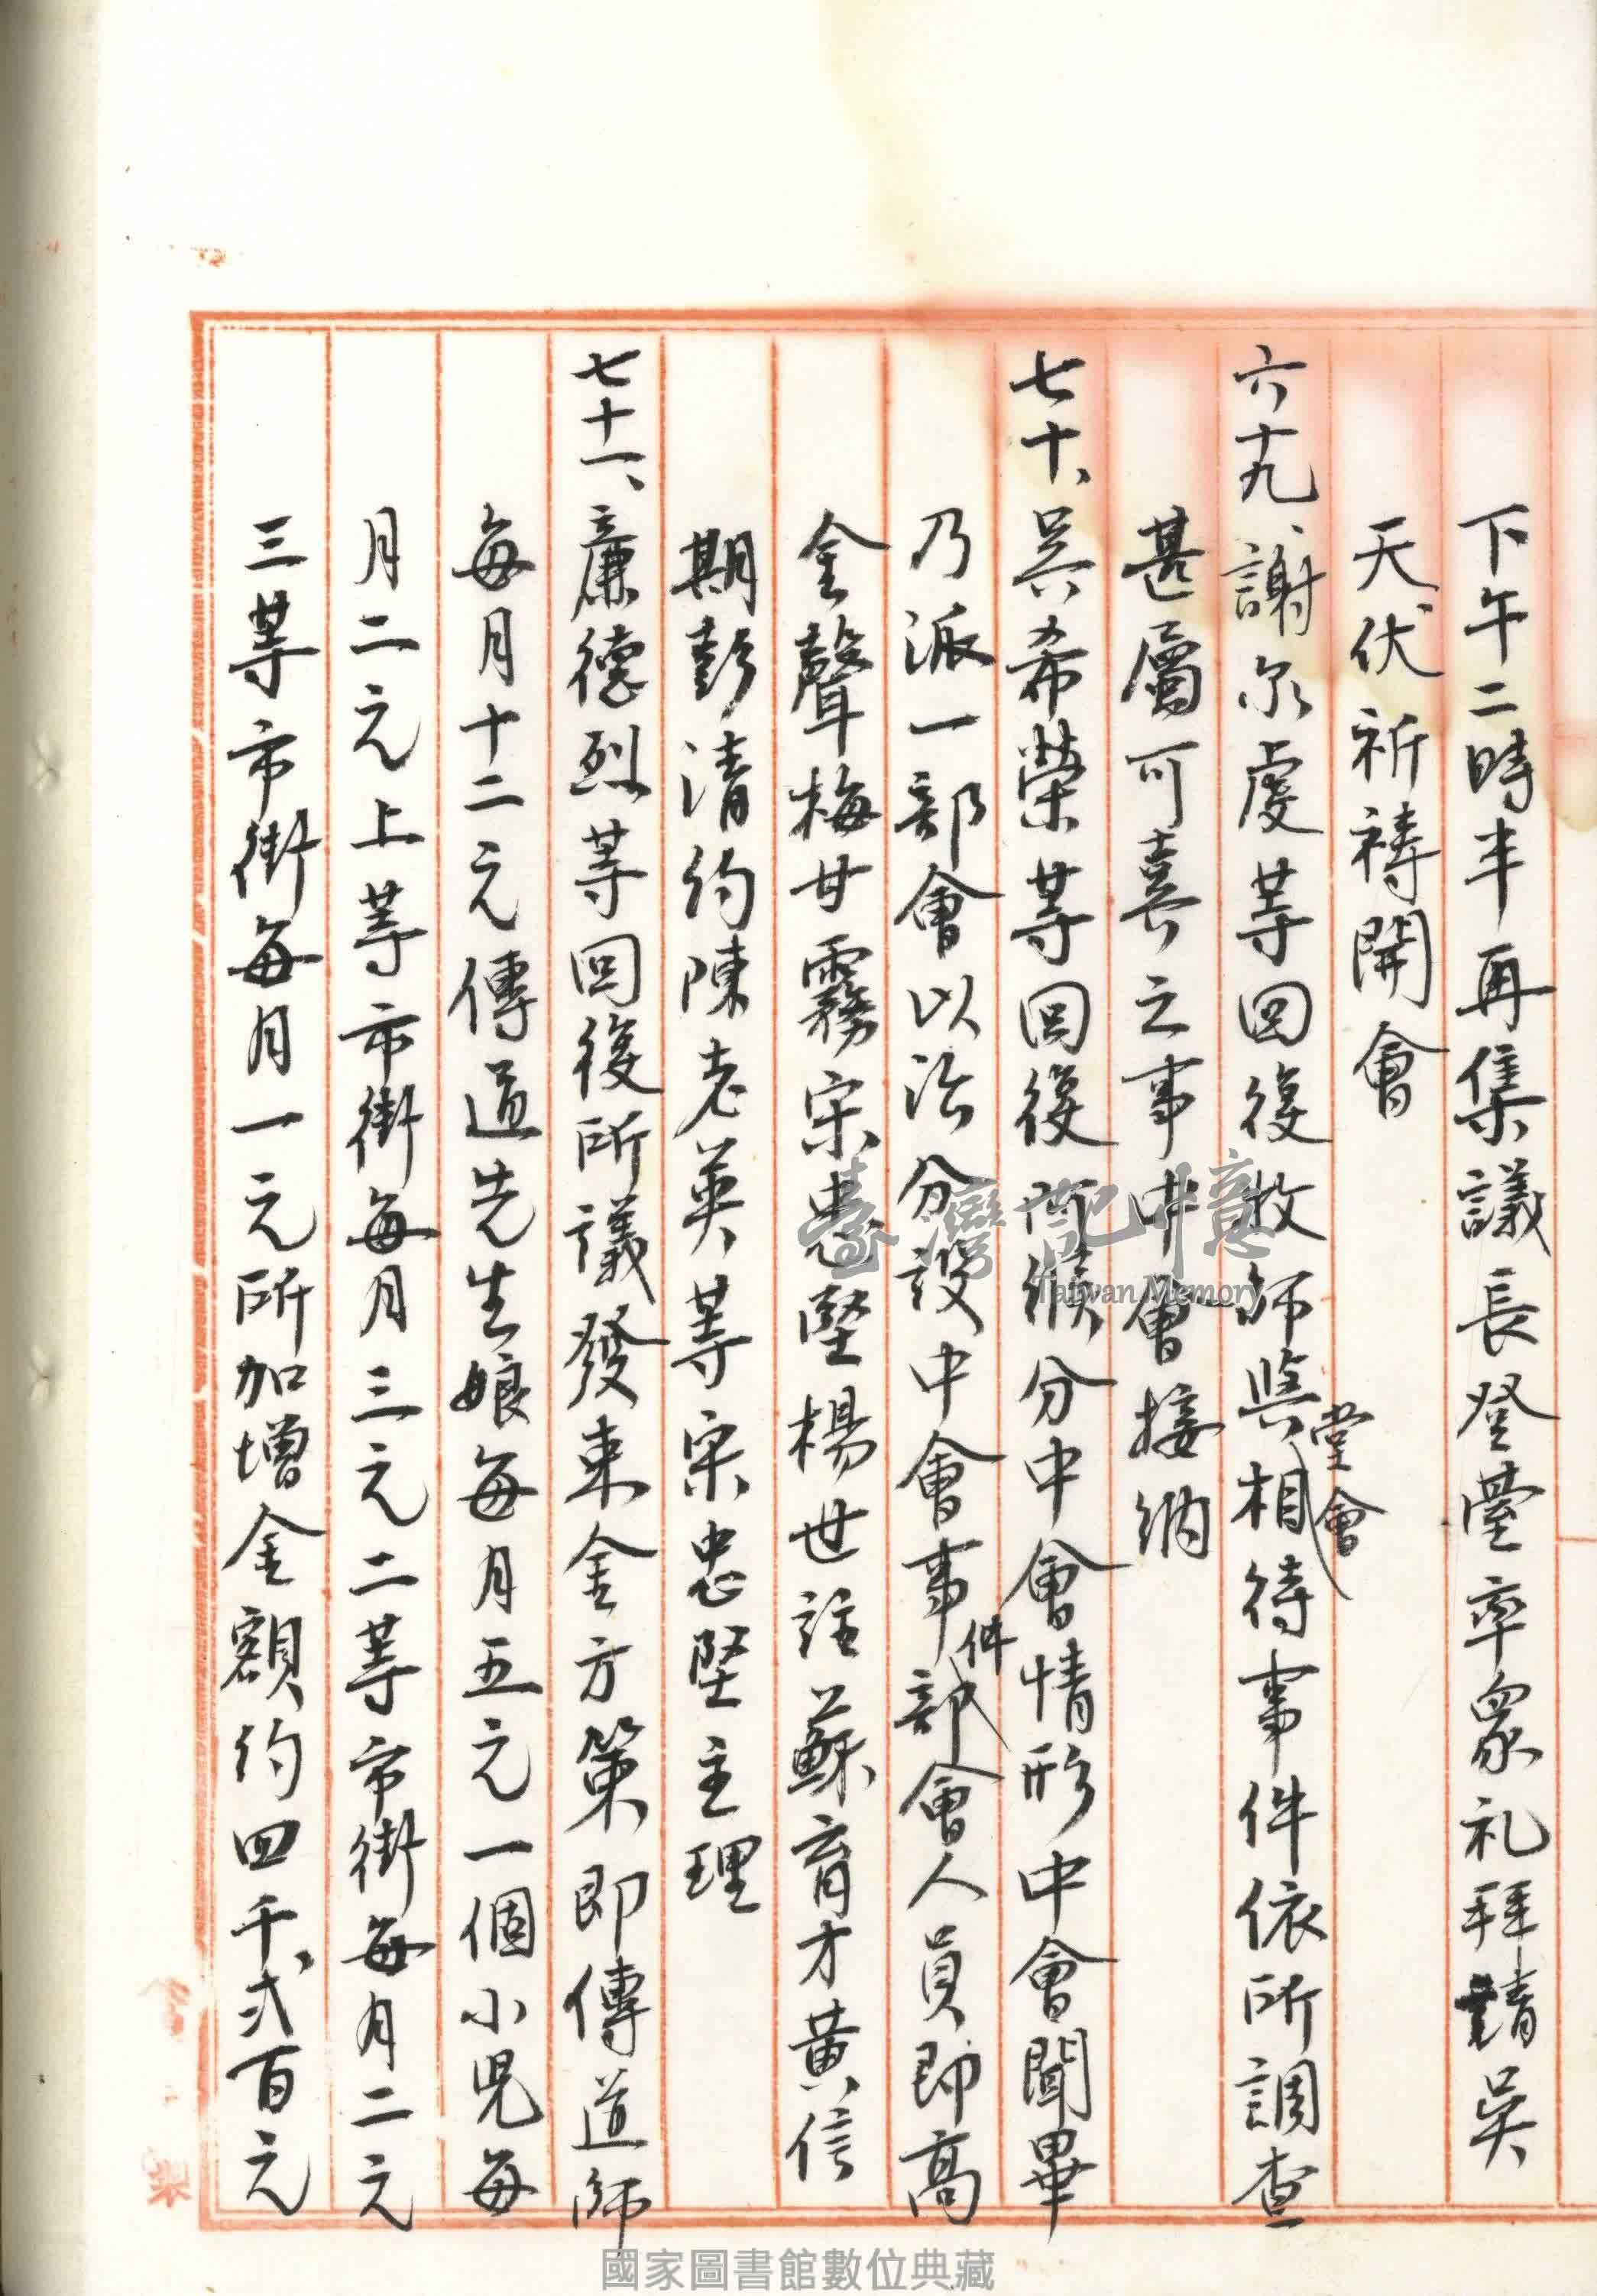 下午二時半再集議長登臺率眾礼拜請吳
天伏祈禱開會
六十九、謝尔虔等回復牧師與堂會相待事件依所調查
甚屬可喜之事中會接納
七十、吳希榮等回復所擬分中會情形中會聞畢
乃派一部會以治分設中會事件部會人員即高
金聲梅甘霧宋忠堅楊世註蘇育才黃信
期彭清約陳老英等宋忠堅主理
七十一、廉德烈等回復所議發束金方策即傳道師
每月十二元傳道先生娘每月五元一個小児每
月二元上等市街每月三元二等市街每月二元
三等市街每月一元所加增金額約四千、弍百元
臺灣記憶
Taiwan Memory
國家圖書館數位典藏